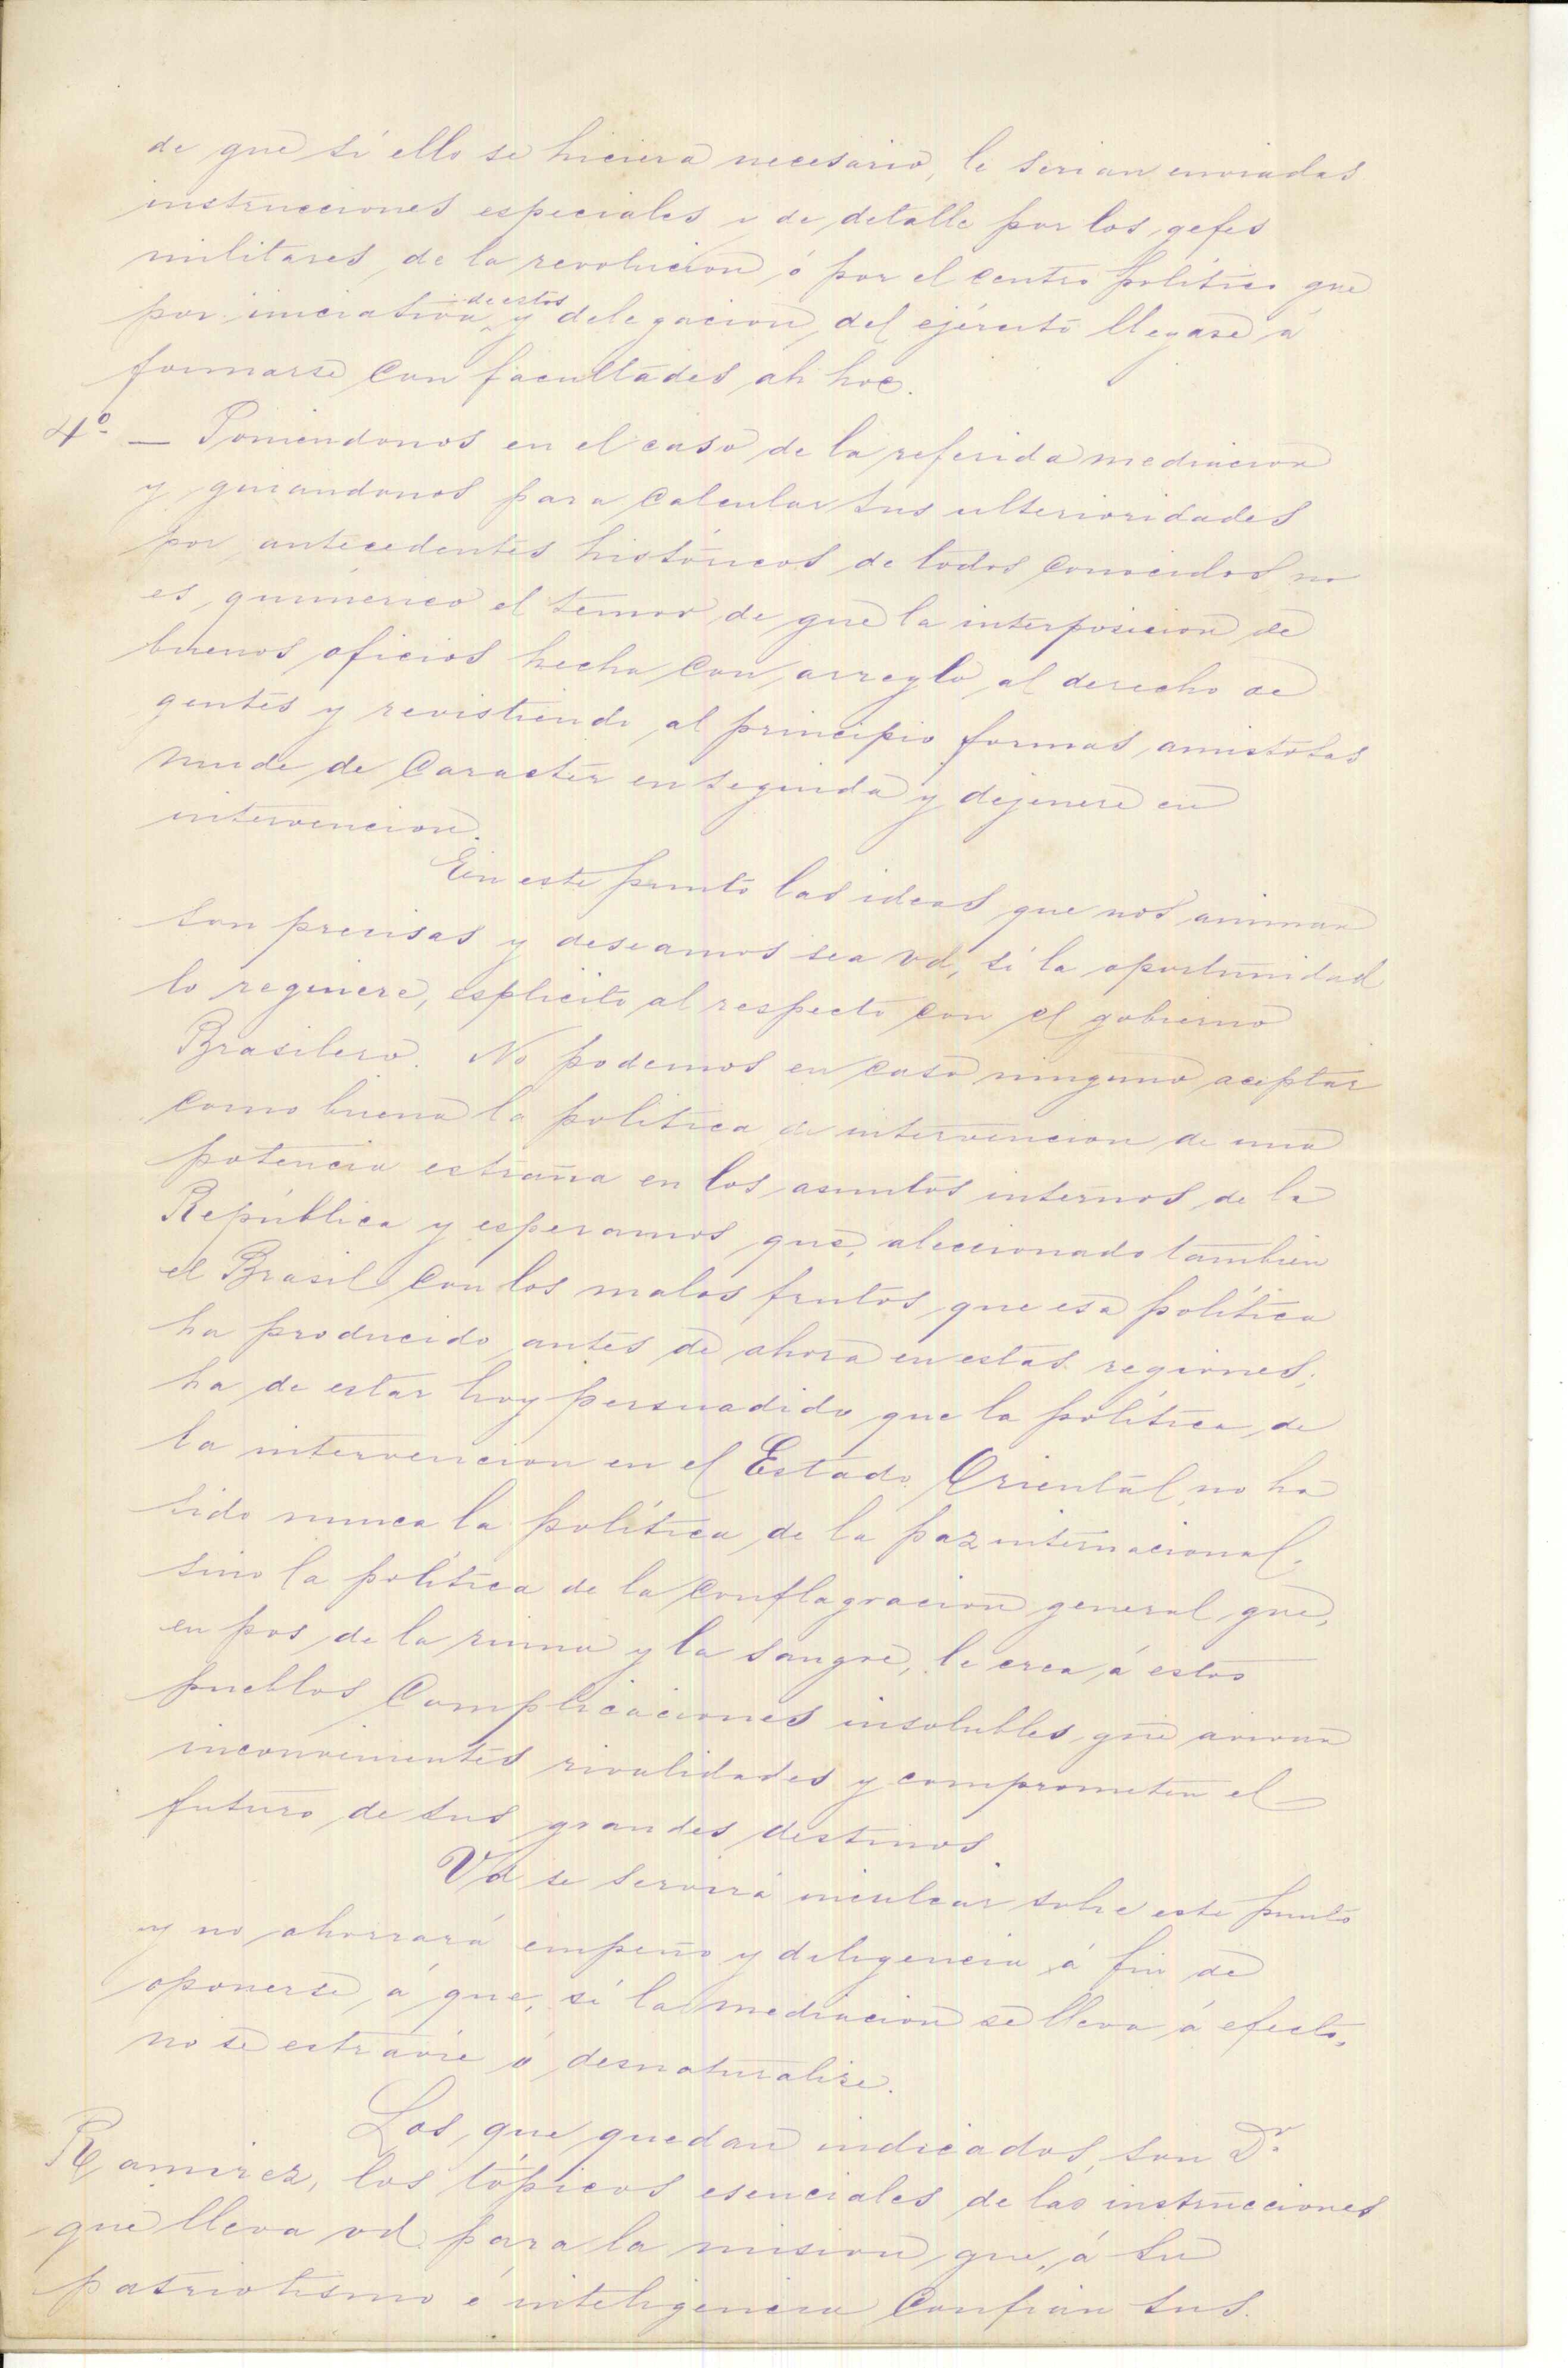 de que sí ello se hiciera necesario, le serian enviadas
instrucciones especiales i de detalle por los gefes
militares de la revolucion ó por el centro político que
por iniciativa de estos y delegacion del ejército llegase á
formarse con facultades ah hoc.
4º — Poniéndonos en el caso de la referida mediacion
y guiandonos para calcular sus ulterioridades
por antecedentes históricos de todos conocidos no
es quimérico el temor de que la interposicion de
buenos oficios hecha con arreglo al derecho de
gentes y revistiendo al principio formas amistosas
mude de caracter en seguida y dejenere en
intervencion.
En este punto las ideas que nos animan
son precisas y deseamos sea vd, sí la oportunidad
lo requiere, esplícito al respecto con el gobierno
Brasilero. No podemos en caso ninguno aceptar
como buena la política de intervencion de una
potencia estraña en los asuntos internos de la
República y esperamos que, aleccionado tambien
el Brasil con los malos frutos que esa política
ha producido antes de ahora en estas regiones,
ha de estar hoy persuadido que la política de
la intervencion en el Estado Oriental no ha
sido nunca la política de la paz internacional,
sino la política de la conflagracion general que,
en pos de la ruina y la sangre, le crea á estos
pueblos complicaciones insolubles que avivan
inconvenientes rivalidades y comprometen el
futuro de sus grandes destinos.
Vd se servirá inculcar sobre este punto
y no ahorrará empeño y diligencia á fin de
oponerse á que, sí la mediacion se lleva á efecto,
no se estravíe ó desnaturalise.
Los que quedan indicados, son Dr.
Ramirez, los tópicos esenciales de las instrucciones
que lleva vd. para la mision que, á su
patriotismo é inteligencia confian sus